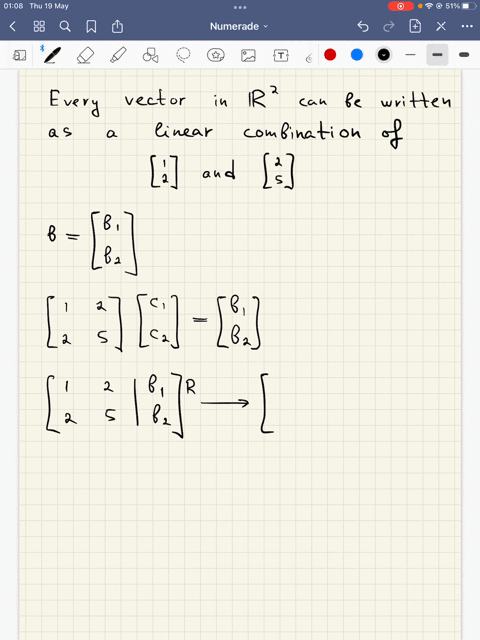 01:08 Thu 19 May 51%
Numerade
T
Every vector in ℝ² can be written
as a linear combination of
[1 2] and [2 5]
b = [b₁ b₂]
[1 2 2 5] [c₁ c₂] = [b₁ b₂]
[1 2 | b₁ 2 5 | b₂] R → [